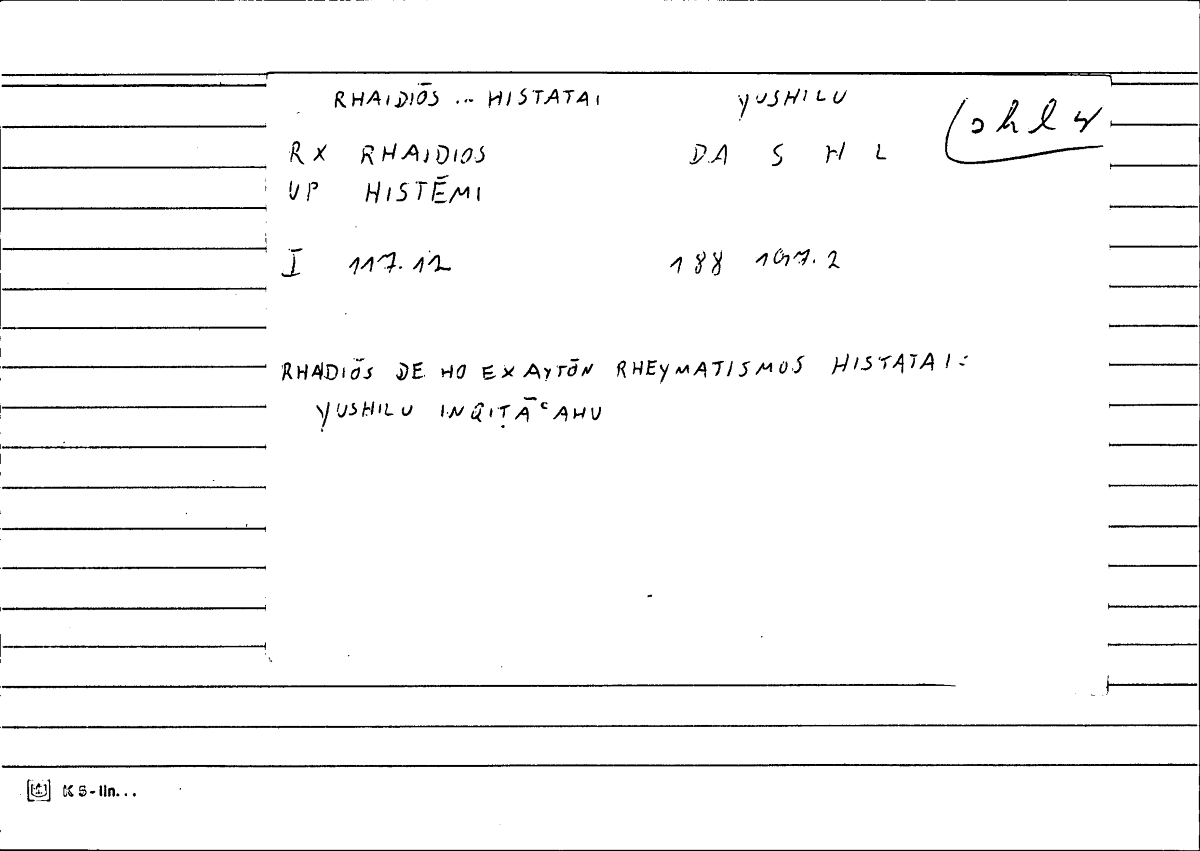 RHAIDIŌS ... HISTATAI YUSHILU
RX RHAIDIOS DA S H L
UP HISTĒMI
I 117.12 188 197.2
RHAIDIŌS DE HO EX AYTŌN RHEYMATISMOS HISTATAI:
YUSHILU INQIṬĀᶜAHU
KS-lin...